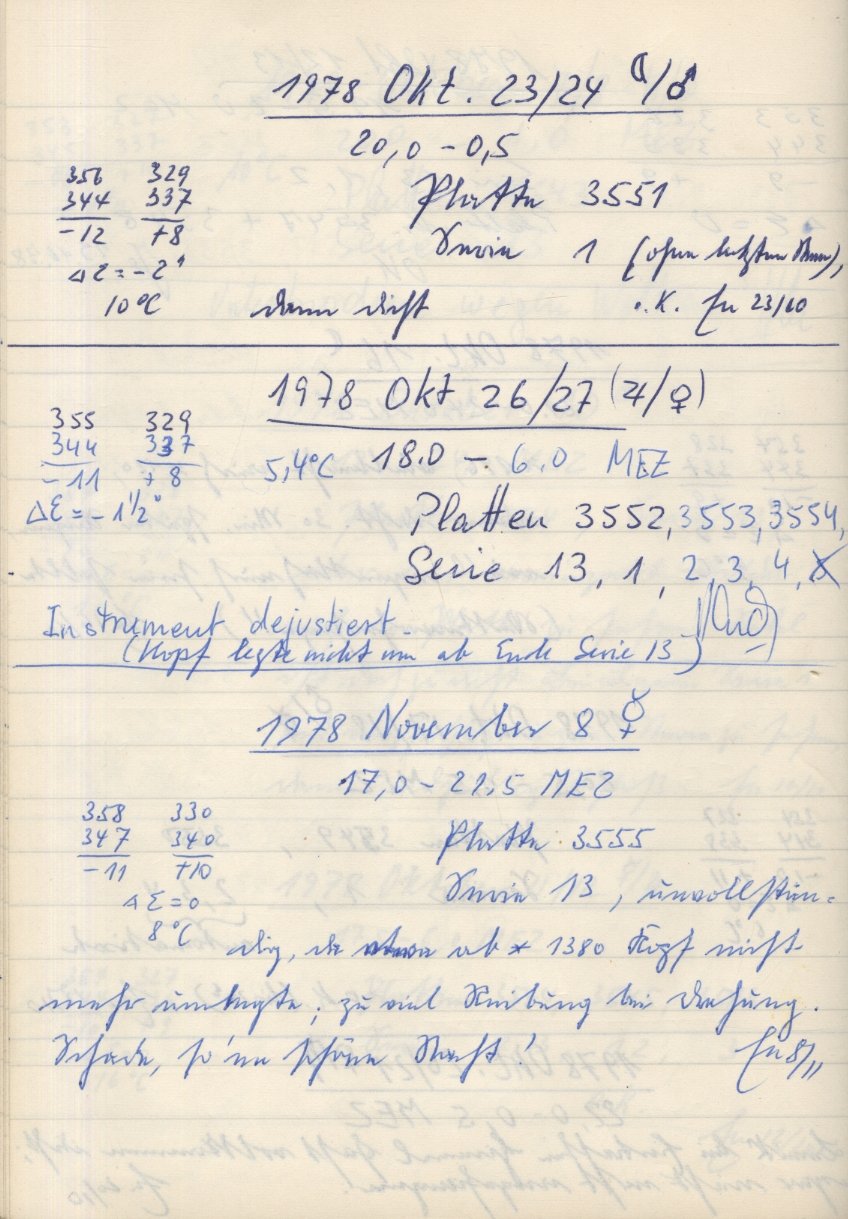 1978 Okt. 23/24 ☾/♂
20,0 – 0,5
356 329
344 337
-12 +8
Platte 3551
Serie 1 (ohne letzten Stern),
Δε = -2"
10°C dann dicht o.K. 23/10
1978 Okt 26/27 (♃/♀)
355 329
344 337
-11 +8
5,4°C 18.0 – 6.0 MEZ
Δε = -1 1/2"
Platten 3552, 3553, 3554,
Serie 13, 1, 2, 3, 4,
Instrument dejustiert.
(Kopf legte nicht um ab Ende Serie 13)
1978 November 8 ☿
17,0 – 21,5 MEZ
358 330
347 340
-11 +10
Platte 3555
Serie 13, unvollstän-
Δε = 0
8°C
dig, da etwa ab * 1380 Kopf nicht
mehr umlegte; zu viel Reibung bei Drehung.
Schade, so'ne schöne Nacht! 8/11